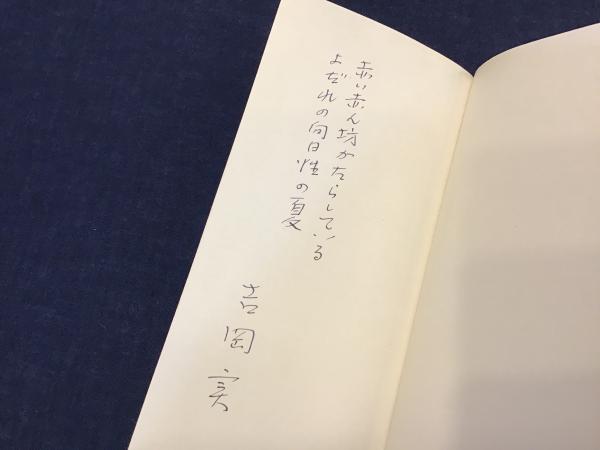 赤い赤ん坊がたらしている
よだれの向日性の夏
吉岡実